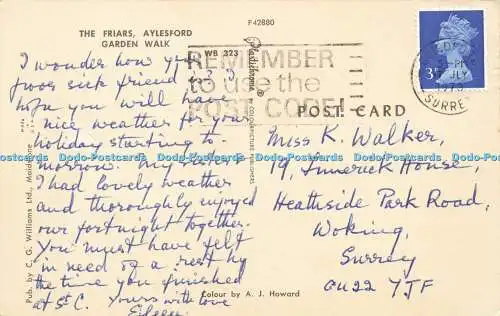 THE FRIARS, AYLESFORD
GARDEN WALK
F42880
WB 323
I wonder how your
poor sick friend is? I
hope you will have
nice weather for your
holiday starting to
morrow. My
I had lovely weather
and thoroughly enjoyed
our fortnight together.
You must have felt
in need of a rest by
the time you finished
at St C. Yours with love
Eileen
Pub. by C. G. Williams Ltd., Maidstone
Plastichrome ®
REMEMBER
to use the
POST CODE!
3P
JLY
1973
SURREY
POST CARD
Miss K. Walker,
19, Limerick House,
Heathside Park Road,
Woking,
Surrey
GU22 7JF
Colour by A. J. Howard
Dodo-Postcards Dodo-Postcards Dodo-Postcards Dodo-Postcards Dodo-Postcards